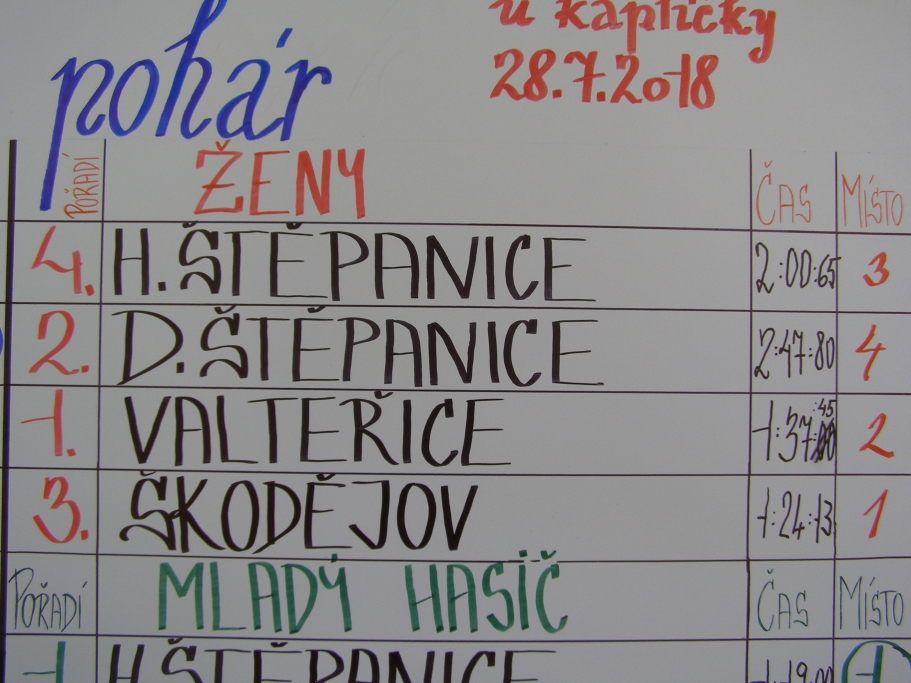 u kapličky
pohár
28.7.2018
POŘADÍ ŽENY ČAS MÍSTO
4. H.ŠTĚPANICE 2:00:65 3
2. D.ŠTĚPANICE 2:47:80 4
1. VALTEŘICE 1:37:45 2
3. ŠKODĚJOV 1:24:13 1
POŘADÍ MLADÝ HASIČ ČAS MÍSTO
1 H.ŠTĚPANICE 1:19:00 1